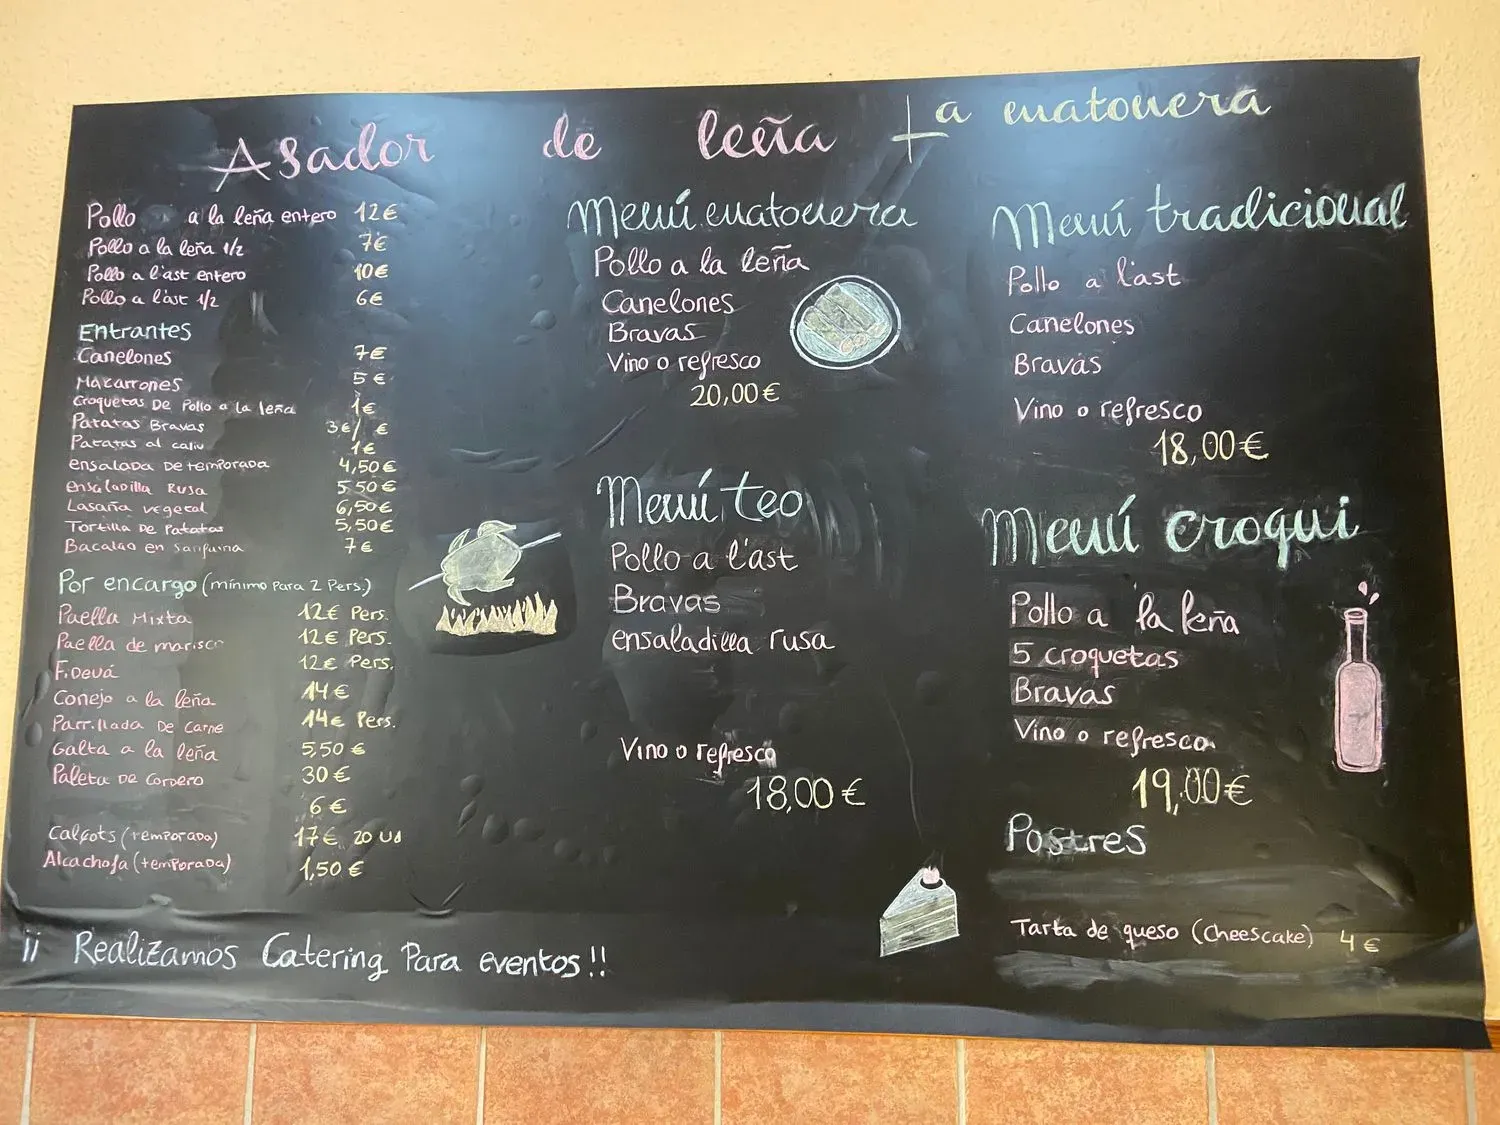 Asador de leña La enatonera
Pollo a la leña entero 12€
Pollo a la leña 1/2 7€
Pollo a l'ast entero 10€
Pollo a l'ast 1/2 6€
Entrantes
Canelones 7€
Macarrones 5€
Croquetas De Pollo a la leña 1€
Patatas Bravas 3€/ €
Patatas al caliu 1€
ensalada De temporada 4,50€
ensaladilla Rusa 5 50€
Lasaña vegetal 6,50€
Tortilla De Patatas 5,50€
Bacalao en Sanfaina 7€
Por encargo (mínimo Para 2 Pers.)
Paella Mixta 12€ Pers.
Paella de marisco 12€ Pers.
Fideuá 12€ Pers.
Conejo a la leña 14€
Parrillada De Carne 14€ Pers.
Galta a la leña 5,50€
Paleta De Cordero 30€
6€
Calçots (temporada) 17€ 20 Ud
Alcachofa (temporada) 1,50€
¡¡ Realizamos Catering Para eventos!!
Menú enatonera
Pollo a la leña
Canelones
Bravas
Vino o refresco
20,00€
Menú teo
Pollo a l'ast
Bravas
ensaladilla rusa
Vino o refresco
18,00€
Menú tradicional
Pollo a l'ast
Canelones
Bravas
Vino o refresco
18,00€
Menú croqui
Pollo a la leña
5 croquetas
Bravas
Vino o refresco
19,00€
Postres
Tarta de queso (cheescake) 4€